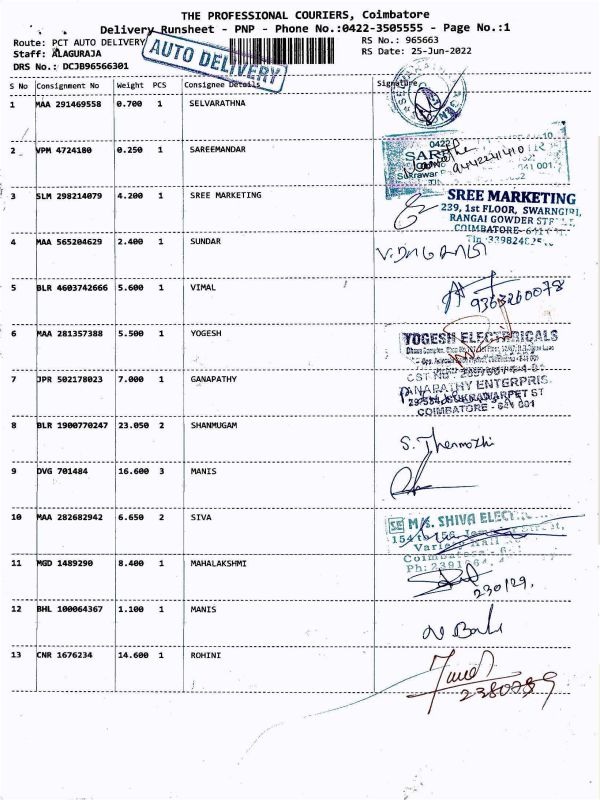 THE PROFESSIONAL COURIERS, Coimbatore
Delivery Runsheet - PNP - Phone No.:0422-3505555 - Page No.:1
Route: PCT AUTO DELIVERY RS No.: 965663
Staff: ALAGURAJA RS Date: 25-Jun-2022
DRS No.: DCJB96566301
AUTO DELIVERY
S No Consignment No Weight PCS Consignee Details Signature
1 MAA 291469558 0.700 1 SELVARATHNA
2 VPM 4724180 0.250 1 SAREEMANDAR
0422
9442241410
3 SLM 298214079 4.200 1 SREE MARKETING
SREE MARKETING
239, 1st FLOOR, SWARNGIRI,
RANGAI GOWDER
COIMBATORE-
4 MAA 565204629 2.400 1 SUNDAR
5 BLR 4603742666 5.600 1 VIMAL
9363260078
6 MAA 281357388 5.500 1 YOGESH
YOGESH ELECTRICALS
7 JPR 502178023 7.000 1 GANAPATHY
GANAPATHY ENTERPRIS
SUKRAWARPET ST
COIMBATORE - 641 001
8 BLR 1900770247 23.050 2 SHANMUGAM
S. Thenmozhi
9 DVG 701484 16.600 3 MANIS
10 MAA 282682942 6.650 2 SIVA
SE M/S. SHIVA
154 to 156,
11 MGD 1489290 8.400 1 MAHALAKSHMI
230129,
12 BHL 100064367 1.100 1 MANIS
13 CNR 1676234 14.600 1 ROHINI